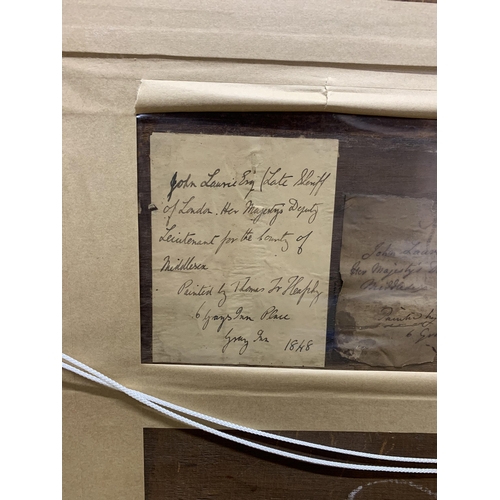 John Laurie Esq (Late Sheriff
of London. Her Majestys Deputy
Lieutenant for the County of
Middlesex
Painted by Thomas Fr Heaphy
6 Grays Inn Place
Grays Inn 1848
John Laur
Her Majesty's
Middlesex
Painted by
6 Gr